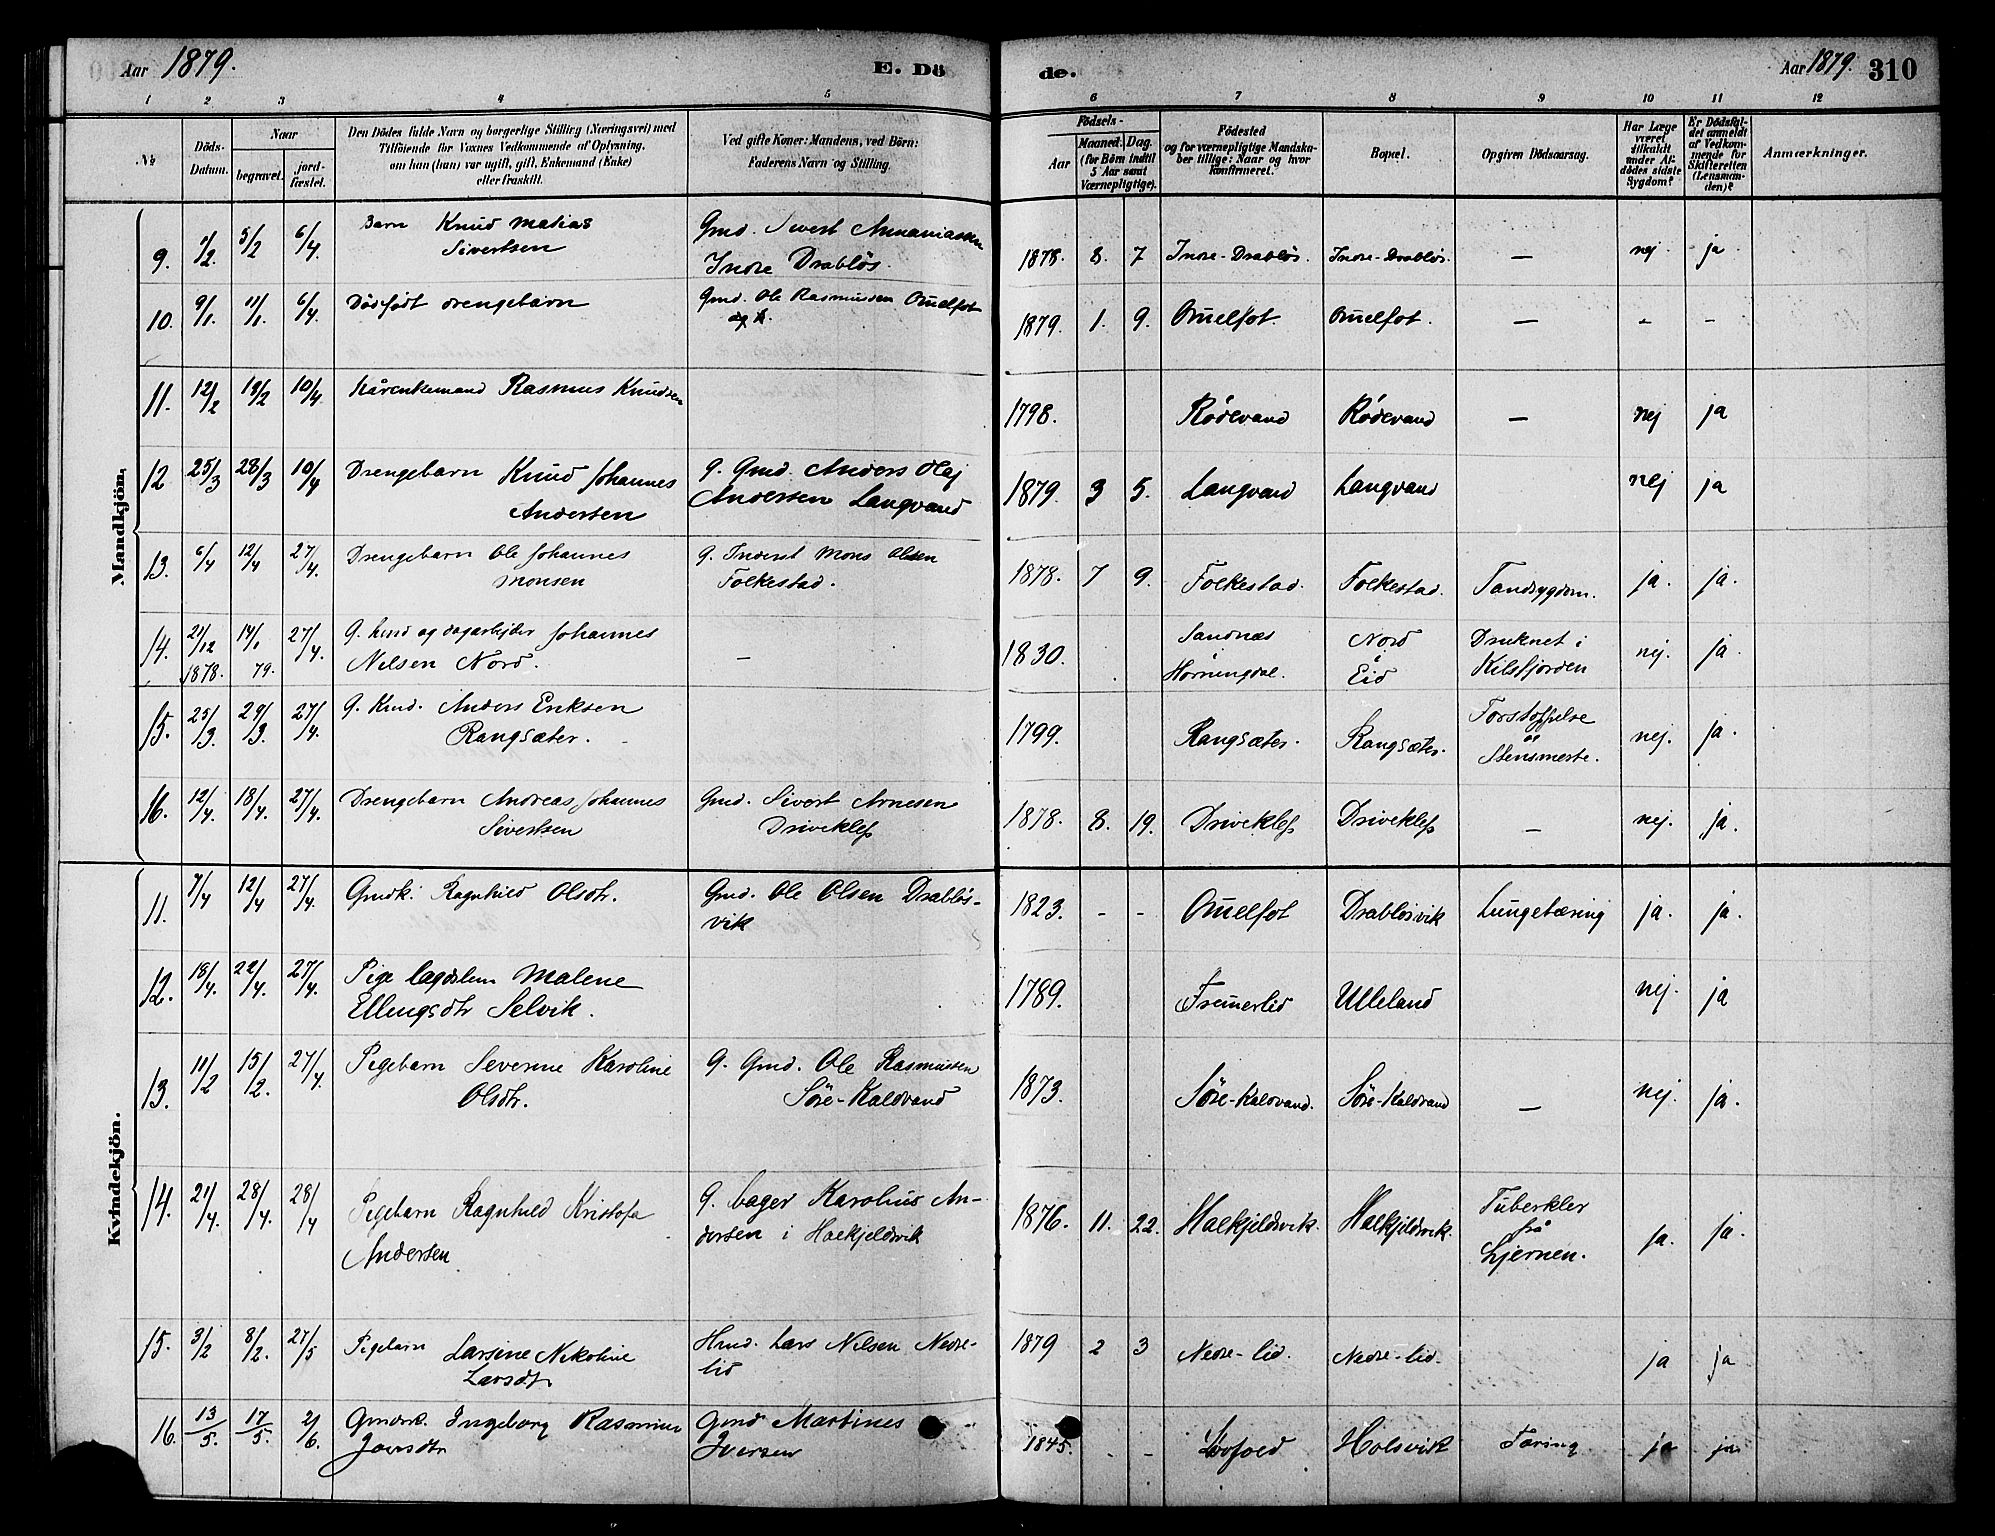 Aar 1879.
E. Dö
de.
Aar 1879. 310
1 2 3 4 5 6 7 8 9 10 11 12
No
Döds-
Datum.
Naar
begravet.
jord-
fæstet.
Den Dödes fulde Navn og borgerlige Stilling (Næringsvei) med
Tilföiende for Voxnes Vedkommende af Oplysning,
om han (hun) var ugift, gift, Enkemand (Enke)
eller fraskilt.
Ved gifte Koner: Mandens, ved Börn:
Faderens Navn og Stilling.
Födsels-
Aar
Maaned. Dag.
(for Börn indtil
5 Aar samt
Værnepligtige).
Födested
og for værnepligtige Mandska-
ber tillige: Naar og hvor
konfirmeret.
Bopæl.
Opgiven Dödsaarsag.
Har Læge
været
tilkaldt
under Af-
dödes sidste
Sygdom?
Er Dödsfal-
det anmeldt
af Vedkom-
mende for
Skifteretten
(Lensman-
den)?
Anmærkninger.
Mandkjön.
9. 1/2 5/2 6/4 Barn Knud Matias
Sivertsen
Gmd. Sivert Annaniassen
Indre Drabløs.
1878. 8. 7 Indre-Drabløs. Indre-Drabløs. — nej ja
10. 9/1. 11/1. 6/4. Dødfødt drengebarn
Gmd. Ole Rasmussen Ouelfot
1879. 1. 9. Ouelfot. Ouelfot. — - -
11. 12/2 19/2 10/4. Kårenkemand Rasmus Knudsen
1798. Rødevand Rødevand — nej ja
12 25/3 28/3 10/4 Drengebarn Knud Johannes
Andersen
G. Gmd. Anders Olaj
Andersen Langvand
1879. 3 5. Langvand Langvand nej ja
13. 6/4 12/4 27/4. Drengebarn Ole Johannes
Monsen
G. Inderst Mons Olsen
Folkestad.
1878. 7 9. Folkestad. Folkestad. Tandsygdom. ja. ja.
14. 21/12 1878. 14/1 79. 27/4. G. Hmd og dagarbejder Johannes
Nilsen Nord.
—
1830. Sandnæs
Horningdal.
Nord
i
Eid
Druknet i
Kilsfjorden
nej. ja.
15. 25/3. 29/3. 27/4. G. Kmd. Anders Eriksen
Rangsæter.
1799. Rangsæter. Rangsæter. Forstoppelse
og
Stensmerte.
nej. ja.
16. 12/4. 18/4. 27/4. Drengebarn Andreas Johannes
Sivertsen
Gmd. Sivert Arnesen
Driveklep
1878. 8. 19. Driveklep Driveklep — nej. ja.
Kvindekjön.
11. 7/4 12/4 27/4. Gmdk. Ragnhild Olsdtr.
Gmd. Ole Olsen Drabløs-
vik
1823. - - Ouelfot Drabløsvik Lungetæring ja. ja.
12. 18/4. 22/4. 27/4. Pige Lagdslem Malene
Ellingsdtr Selvik.
1789. Fremerlid Ulleland nej. ja
13. 11/2 15/2. 27/4. Pigebarn Severine Karoline
Olsdtr.
G. Gmd. Ole Rasmussen
Søre-Kaldvand
1873. Søre-Kaldvand. Søre-Kaldvand — nej. ja.
14. 21/4. 28/4. 28/4 Pigebarn Ragnhild Kristofa
Andersen
G. Bager Karolius An-
dersen i Halkjeldsvik
1876. 11. 22. Halkjeldsvik. Halkjeldsvik. Tuberkler
på
Hjernen.
ja. ja.
15. 3/2 8/2. 27/5 Pigebarn Larsine Nikoline
Larsdtr
Hmd. Lars Nilsen Nedre-
lid
1879 2 3 Nedre-lid. Nedre-lid. ja ja
16. 13/5. 17/5. 2/6. Gmdsk. Ingeborg Rasmine
Joarsdtr
Gmd Martines
Iversen
1845. - - Løvfold Holsvik Tæring ja ja